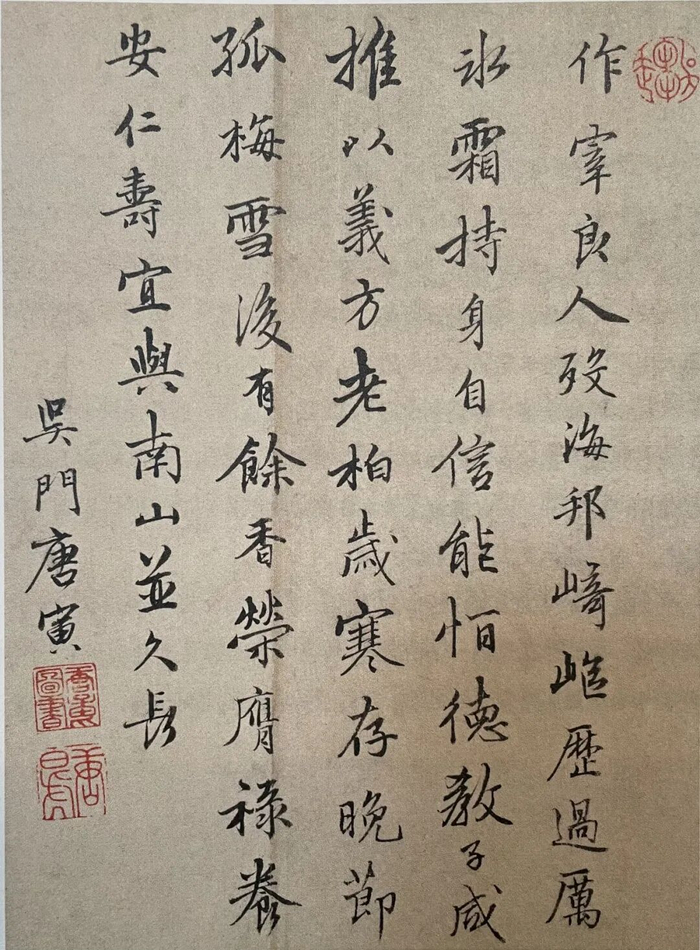 作宰良人歿海邦崎嶇歷過厲
冰霜持身自信能恒德教子咸
推以義方老柏歲寒存晚節
孤梅雪後有餘香榮膺祿養
安仁壽宜與南山並久長
吳門唐寅
唐寅圖書
唐白虎